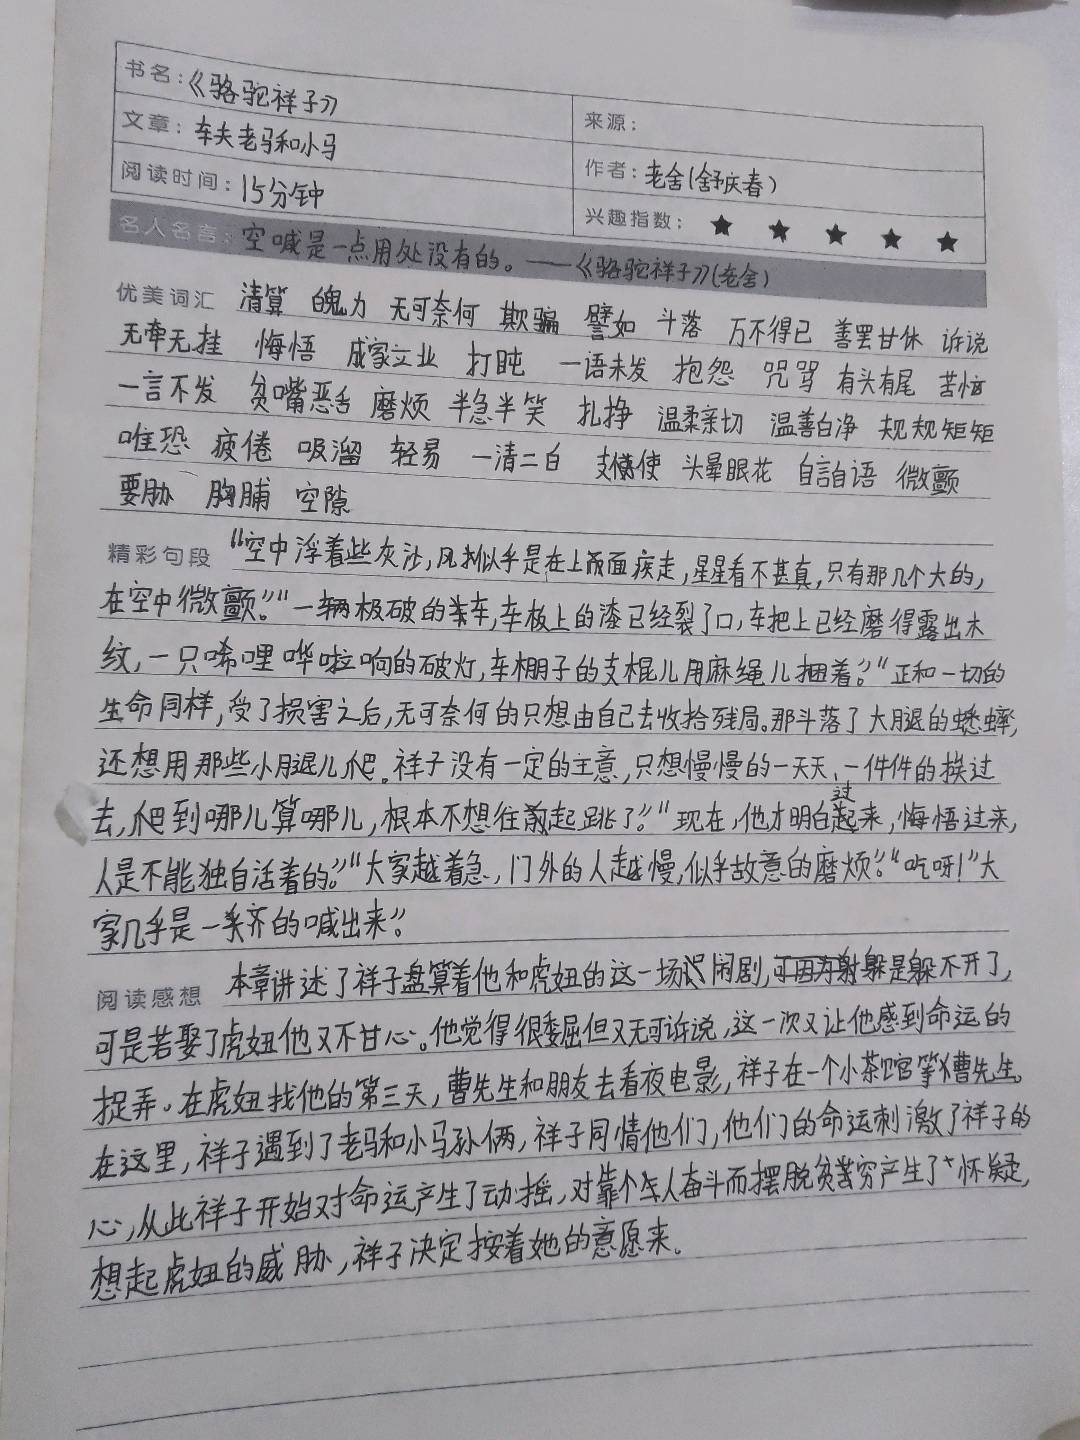 书名：《骆驼祥子》
来源：
文章：车夫老马和小马
作者：老舍(舒庆春)
阅读时间：15分钟
兴趣指数：★ ★ ★ ★ ★
名人名言：空喊是一点用处没有的。——《骆驼祥子》(老舍)
优美词汇 清算 魄力 无可奈何 欺骗 譬如 斗落 万不得已 善罢甘休 诉说
无牵无挂 悔悟 成家立业 打盹 一语未发 抱怨 咒骂 有头有尾 苦恼
一言不发 贫嘴恶舌 磨烦 半急半笑 扎挣 温柔亲切 温善白净 规规矩矩
唯恐 疲倦 吸溜 轻易 一清二白 支使 头晕眼花 自言自语 微颤
要胁 胸脯 空隙
精彩句段 “空中浮着些灰沙，风似乎是在上面疾走，星星看不甚真，只有那几个大的，
在空中微颤。”“一辆极破的车，车板上的漆已经裂了口，车把上已经磨得露出木
纹，一只唏哩哗啦响的破灯，车棚子的支棍儿用麻绳儿捆着。”“正和一切的
生命同样，受了损害之后，无可奈何的只想由自己去收拾残局。那斗落了大腿的蟋蟀，
还想用那些小腿儿爬。祥子没有一定的主意，只想慢慢的一天天、一件件的挨过
去，爬到哪儿算哪儿，根本不想往起跳了。”“现在，他才明白过来，悔悟过来，
人是不能独自活着的。”“大家越着急，门外的人越慢，似乎故意的磨烦。”“吃呀！”大
家几乎是一齐的喊出来。”
阅读感想 本章讲述了祥子盘算着他和虎妞的这一场闹剧，躲是躲不开了，
可是若娶了虎妞他又不甘心。他觉得很委屈但又无可诉说，这一次又让他感到命运的
捉弄。在虎妞找他的第三天，曹先生和朋友去看夜电影，祥子在一个小茶馆等曹先生。
在这里，祥子遇到了老马和小马孙俩，祥子同情他们，他们的命运刺激了祥子的
心，从此祥子开始对命运产生了动摇，对靠个人奋斗而摆脱贫穷产生了怀疑，
想起虎妞的威胁，祥子决定按着她的意愿来。